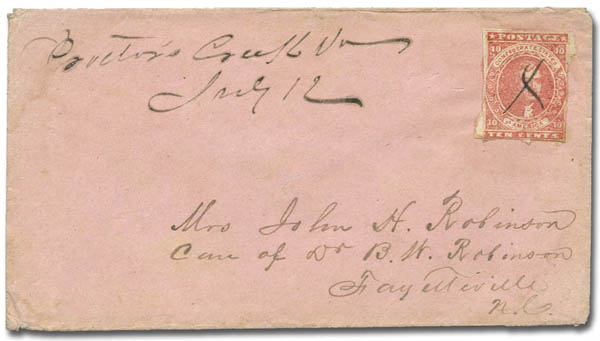 Proctors Creek Va
July 12
POSTAGE
10 10
CONFEDERATE STATES
OF AMERICA
10 10
TEN CENTS
X
Mrs John H. Robinson
Care of Dr B. W. Robinson
Fayetteville
N.C.